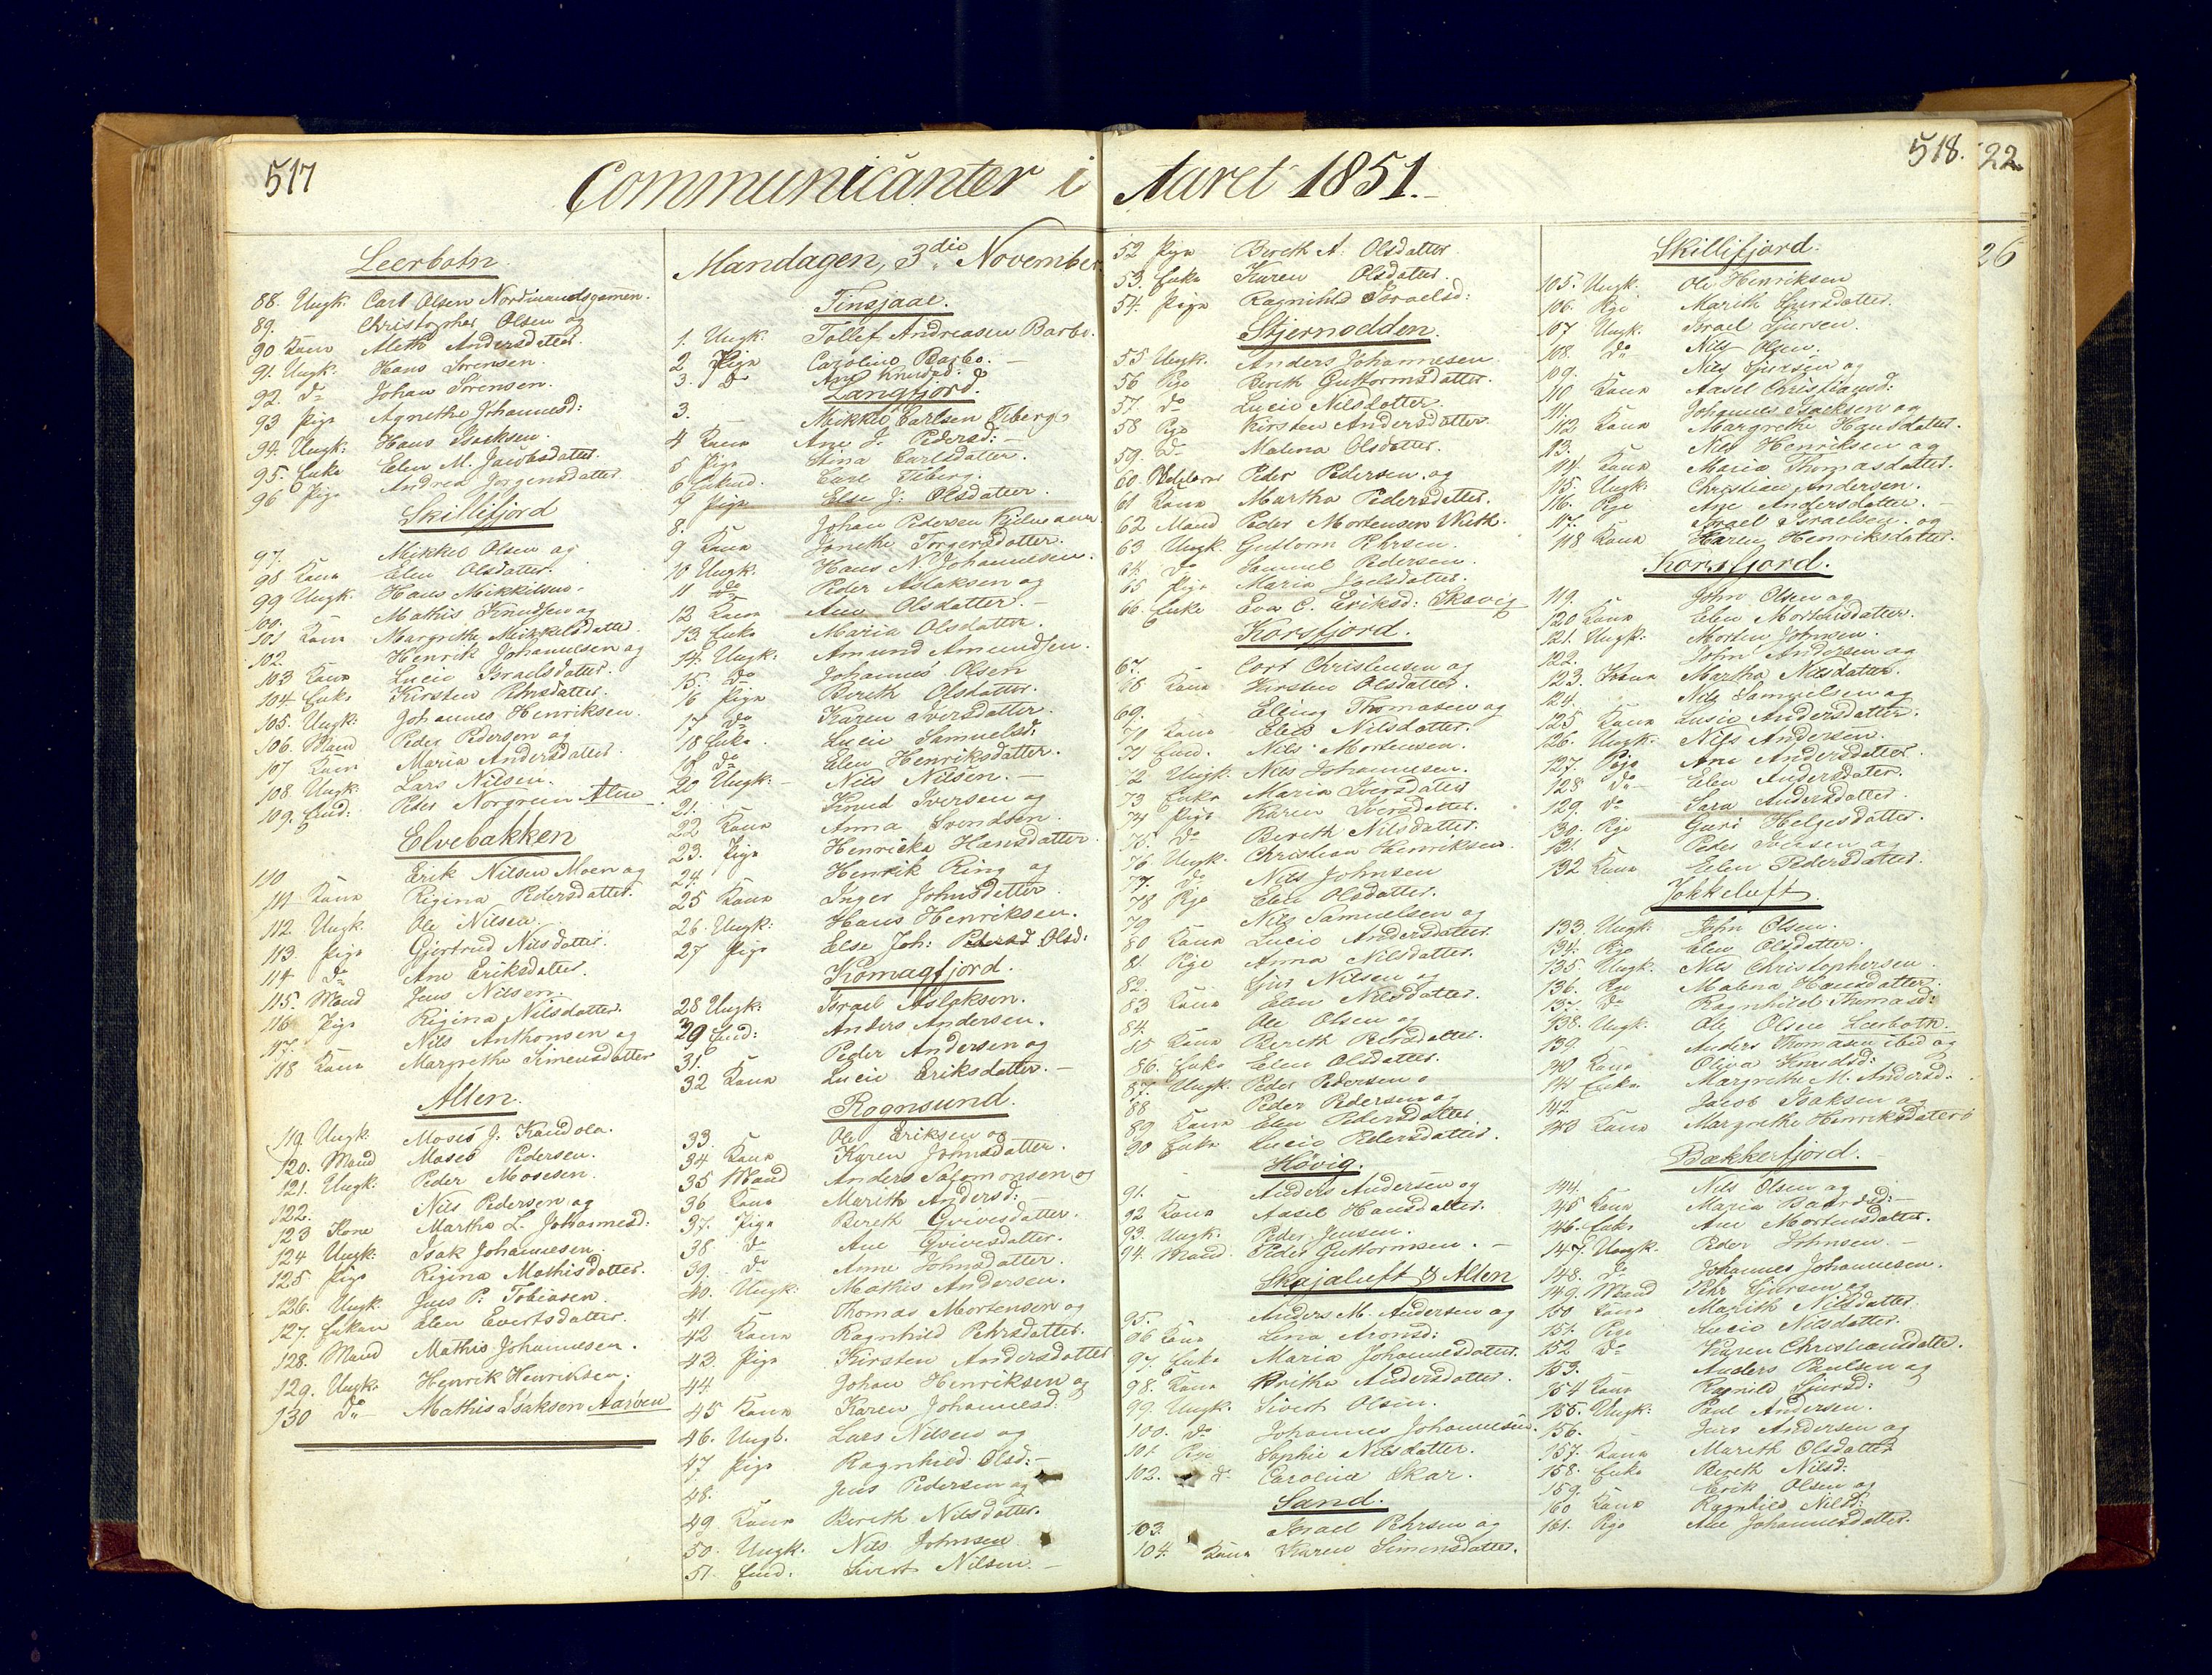 517
Communicanter i Aaret 1851.
518.
22.
26
Leerbotn
88. Ungk: Carl Olsen Nordmandsgamen.
89. Christopher Olsen og
90 Kone Aleth Andersdatter.
91. Ungk: Hans Sørensen.
92. do Johan Sørensen.
93 Pige Agnethe Johannesd:
94. Ungk: Hans Isaksen.
95. Enke Elen M. Jacobsdatter
96 Pige Andrea Jørgensdatter
Skillifjord
97. Mikkel Olsen og
98 Kone Elen Olsdatter.
99 Ungk. Hans Mikkelsen.
100. Mathis Knudsen og
101 Kone Margrethe Mikkelsdatter
102. Henrik Johannesen og
103 Kone Lucie Israelsdatter.
104 Enke Kirsten Pehrsdatter.
105. Ungk: Johannes Henriksen.
106. Mand Peder Pedersen og
107 Kone Maria Andersdatter
108 Ungk: Lars Nilsen.
109. Eind: Peder Norgreen Alten
Elvebakken
110 Erik Nilsen Moen og
111 Kone Rigina Pedersdatter.
112. Ungk: Ole Nilsen.
113. Pige Gjertrud Nilsdatter.
114 do Ane Eriksdatter.
115. Mand Jens Nilsen.
116 Pige Rigina Nilsdatter.
117. Nils Anthonsen og
118 Kone Margrethe Simensdatter
Alten.
119. Ungk: Moses J. Kandola.
120. Mand Moses Pedersen.
121. Ungk: Peder Mosesen.
122. Nils Pedersen og
123 Kone Martha L. Johannesd:
124 Ungk: Isak Johannesen.
125. Pige Rigina Mathisdatter.
126. Ungk Jens P. Tobiasen.
127. Enken Elen Evertsdatter.
128. Mand Mathis Johannesen.
129. Ungk. Henrik Henriksen.
130 do Mathis Isaksen Aarøen
Mandagen, 3die November.
Tinsjaae.
1. Ungk. Tollef Andreasen Barbo.
2 Pige Caroline Barbo. —
3. do Ane Knudsd:
Langfjord.
3. Mikkel Carlsen Tiberg
4 Kone Ane J. Pedersd: —
5 Pige Stina Carlsdatter.
6 Enkmd. Carl Tiberg.
7 Pige Else J: Olsdatter.
8. Johan Pedersen Kjelmann
9 Kone Jonethe Torgersdatter.
10 Ungk: Hans N. Johannesen.
11 do Peder Aslaksen og
12 Kone Ane Olsdatter. —
13. Enke Maria Olsdatter.
14. Ungk: Amund Amundsen.
15. do Johannes Olsen
16 Pige Bereth Olsdatter.
17 do Karen Iversdatter.
18 Enke. Lucie Samuelsd:
19 do Elen Henriksdatter.
20 Ungk: Nils Nilsen. —
21. Knud Iversen og
22 Kone Anna Svendsen.
23. Pige Henricka Hansdatter.
24. Henrik Ring og
25 Kone Inger Johnsdatter
26. Ungk: Hans Henriksen.
27 Pige Else Joh: Olsd:
Komagfjord.
28 Ungk: Israel Aslaksen.
29 Eind: Anders Andersen.
31. Peder Andersen og
32 Kone Lucie Eriksdatter. —
Rognsund.
33. Ole Eriksen og
34 Kone Karen Johnsdatter.
35 Mand Anders Salomonsen og
36 Kone Marith Andersd: —
37. Pige Bereth Gvivesdatter.
38 do Ane Gvivesdatter.
39. do Anne Johnsdatter.
40. Ungk: Mathis Andersen.
41. Thomas Mortensen og
42 Kone Ragnhild Pehrsdatter.
43. Pige Kirsten Andersdatter
44. Johan Henriksen og
45 Kone Karen Johannesd:
46. Ungk. Lars Nilsen og
47 Pige Ragnhild Olsd: —
48. Jens Pedersen og
49. Kone Bereth Nilsdatter.
50. Ungk. Nils Johnsen
51. Eind: Sivert Nilsen. —
52 Pige Bereth A. Olsdatter.
53. Enke Karen Olsdatter.
54. Pige Ragnihld Israelsd:
Stjernodden.
55 Ungk. Anders Johannesen
56 Pige Bereth Guttormsdatter.
57. do Lucie Nilsdatter.
58 Pige Kirsten Andersdatter
59. do Malena Olsdatter.
60. Peder Pedersen og
61 Kone Martha Pedersdatter.
62 Mand Peder Mortensen Weth.
63 Ungk. Guttorm Pehrsen.
64. do Samuel Pedersen.
65 Pige Maria Joelsdatter.
66. Enke Eva C. Eriksd: Skavig
Korsfjord.
67. Cort Christensen og
68 Kone Kirsten Olsdatter.
69. Eling Thomasen og
70 Kone Elen Nilsdatter.
71 Eind. Nils Mortensen.
72 Ungk. Nils Johannesen.
73 Enke Maria Iversdatter
74 Pige Karen Iversdatter.
75. do Bereth Nilsdatter.
76. Ungk. Christian Henriksen
77. do Nils Johnsen
78 Pige Elen Olsdatter.
79 Nils Samuelsen og
80 Kone Lucie Andersdatter.
81. Pige Anna Nilsdatter.
82. Gjur Nilsen og
83 Kone Elen Nilsdatter.
84. Ole Olsen og
85 Kone Bereth Pehrsdatter.
86. Enke Elen Olsdatter.
87. Ungk. Peder Pedersen
88 Peder Pedersen og
89 Kone Elen Pedersdatter
90 Enke Lucie Pedersdatter.
Høvig.
91. Anders Andersen og
92 Kone Aasel Hansdatter.
93. Ungk. Peder Jensen.
94. Mand Peder Guttormsen. —
Skajaluft & Alten
95. Anders M. Andersen og
96 Kone Lena Aronsd:
97. Enke Maria Johannesdatter.
98. Kone Britha Andersdatter.
99. Ungk. Sivert Olsen.
100. do Johannes Johannesen.
101. Pige Sophie Nilsdatter.
102. d. Caroline Skar.
Sand.
103. Israel Pehrsen og
104. Kone Karen Simensdatter.
Skillifjord:
105. Ungk. Ole Henriksen
106. Pige Marith Gjursdatter.
107 Ungk. Israel Gjursen.
108. do Nils Olsen.
109. Nils Gjursen og
110 Kone Aasel Christiansd:
111. Johannes Isaksen og
112 Kone Margrethe Hansdatter.
113. Nils Henriksen og
114. Kone Maria Thomasdatter.
115. Ungk. Christian Andersen.
116. Pige Ane Andersdatter. —
117. Israel Israelsen og
118 Kone Karen Henriksdatter.
Korsfjord.
119. John Olsen og
120 Kone Elen Mortensdatter.
121. Ungk: Morten Johnsen.
122. John Andersen og
123. Kone Martha Nilsdatter.
124. Nils Samuelsen og
125 Kone Lusie Andersdatter.
126. Ungk. Nils Andersen.
127. Pige Ane Andersdatter.
128 do Elen Andersdatter.
129. do Sara Andersdatter
130. Pige Guri Helgesdatter.
131. Peder Iversen og
132 Kone Elen Pedersdatter.
Jokkeluft.
133. Ungk: John Olsen.
134. Pige Elen Olsdatter.
135. Ungk. Nils Christophersen
136. Pige Malena Hansdatter.
137. do Ragnhild Thomasd:
138. Ungk. Ole Olsen Leerbotn.
139. Anders Thomasen ibid og
140 Kone Oliva Knudsd:
141 Enke. Margrethe M. Andersd.
142. Jacob Isaksen og
143 Kone Margrethe Henriksdatter
Bækkerfjord.
144. Nils Olsen og
145 Kone Maria Baardsd: —
146. Enke Ane Mortensdatter.
147. Ungk. Peder Johnsen. —
148. do Johannes Johannesen.
149. Mand Pehr Gjursen og
150. Kone Marith Nilsdatter.
151. Pige Lucie Nilsdatter.
152. do Karen Christiansdatter.
153. Anders Paulsen og
154 Kone Ragnild Gjursd:
155. Ungk: Paul Andersen.
156. Jens Andersen og
157. Kone Marith Olsdatter
158. Enke Bereth Nilsd:
159. Erik Olsen og
160 Kone Ragnhild Nilsd:
161. Pige Ane Johannesdatter.